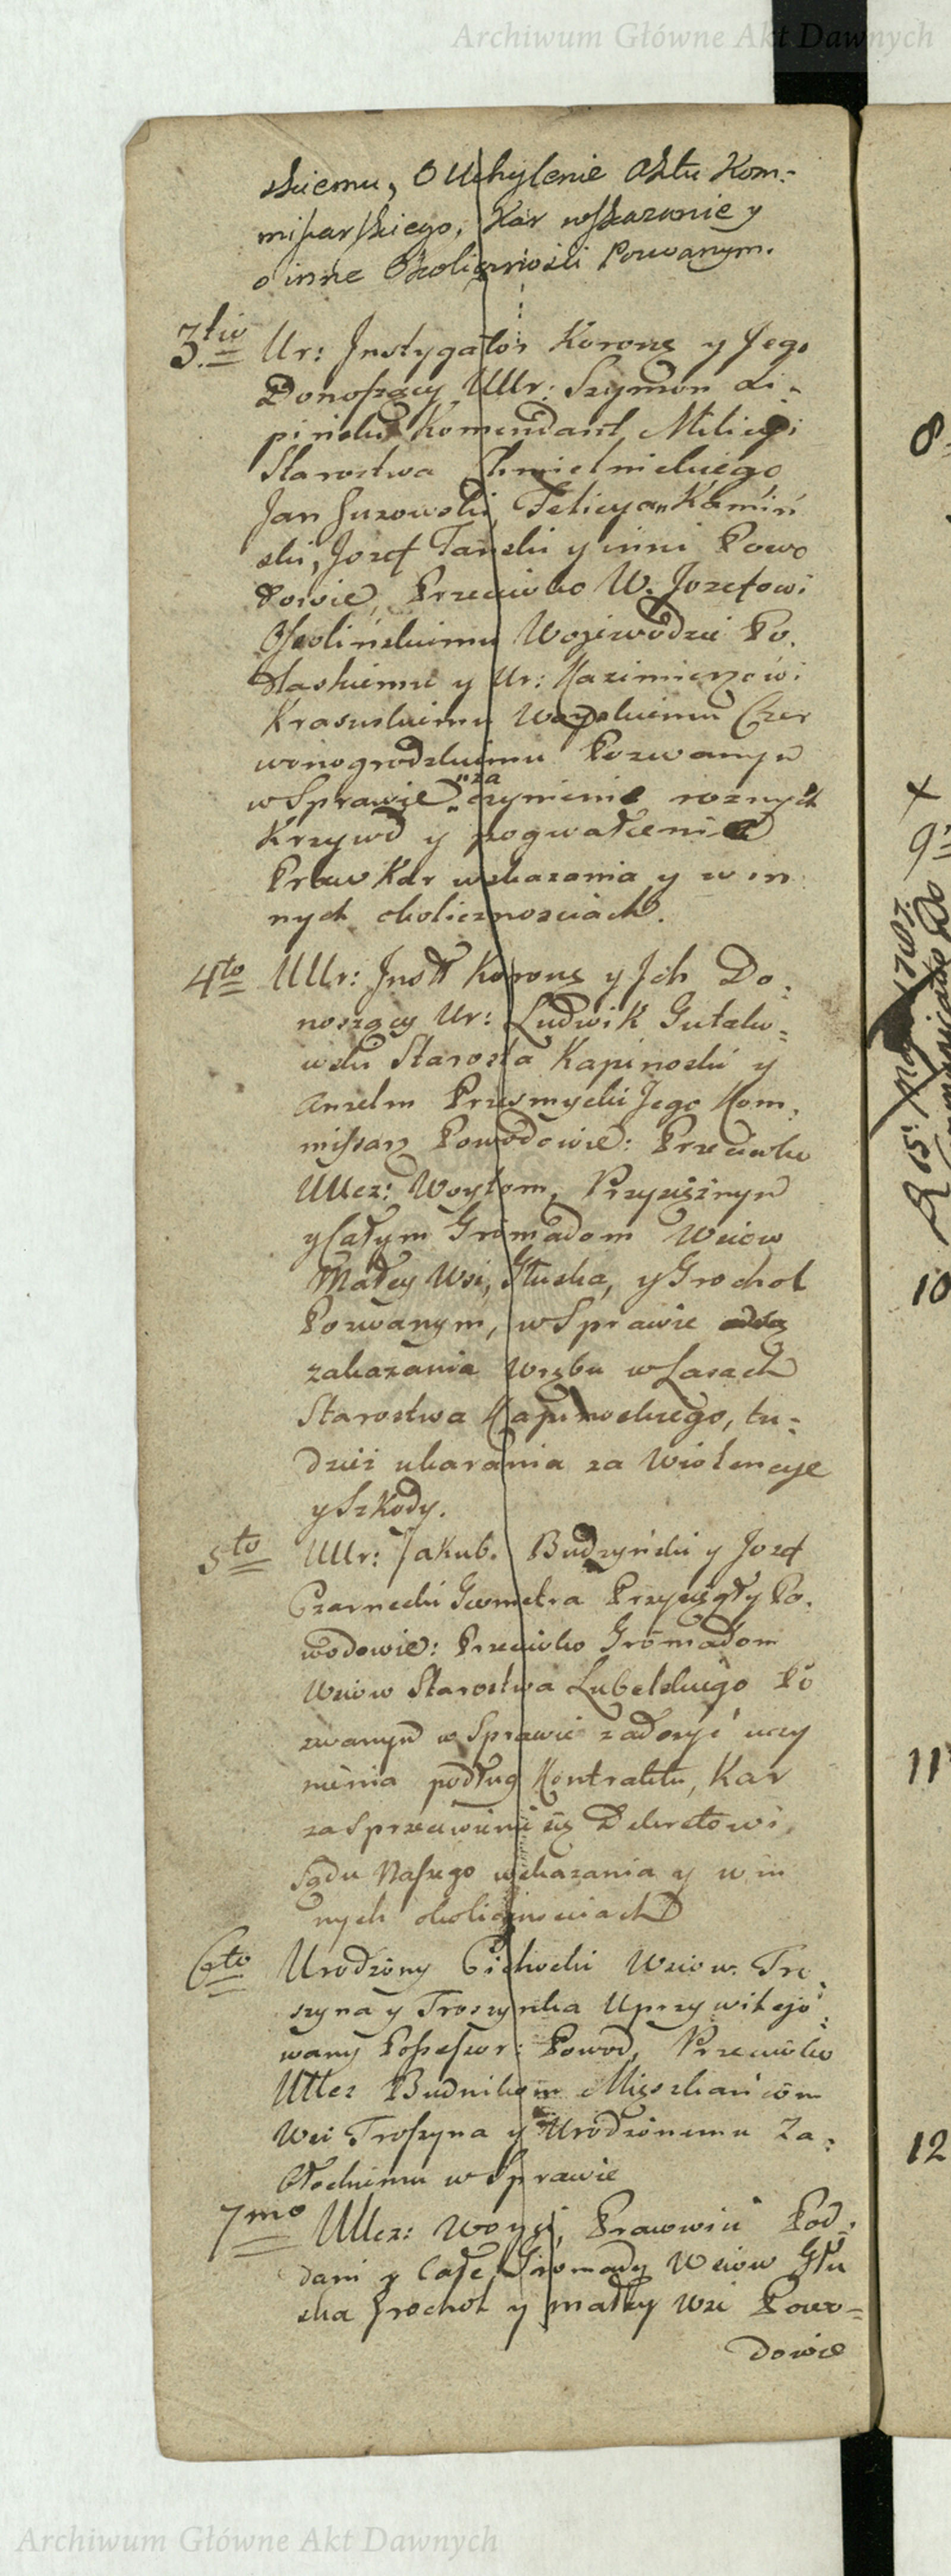 Archiwum Główne Akt Dawnych
skiemu, O Uchylenie Aktu Kom-
missarskiego, Kar wskazanie y
o inne Okoliczności Pozwanym.
3.tio Ur: Instygator Korony y Jego
Donoszący UUr: Szymon Li-
piński Komendant Milicyi
Starostwa Chmielnickiego
Jan Gurowski, Felicyan Kamiń
ski, Jozef Tański y inni Powo
dowie, Przeciwko W. Jozefowi
Ossolińskiemu Wojewodzie Po.
dlaskiemu y Ur: Kazimierzowi
Krasuskiemu Woyskiemu Czer
wonogrodzkiemu Pozwanym
w Sprawie za czynienie roznych
Krzywd y pogwałcenie
Praw Kar wskazania y w in
nych okolicznosciach.
4to UUr: Instt Korony y Ich Do-
noszący Ur: Ludwik Gutako-
wski Starosta Kapinoski y
Anzelm Przesmycki Jego Kom-
missarz Powodowie: Przeciwko
UUcz: Woytom, Przysiężnym
y Całym Gromadom Wsiow
Małey Wsi, Głuska, y Grochol
Pozwanym, w Sprawie
zakazania Wrębu w Lasach
Starostwa Kapinoskiego, tu-
dzież ukarania za Wiolencye
y Szkody.
5to UUr: Jakub. Budzyński y Jozef
Czarnecki Geometra Przysięgły Po.
wodowie: Przeciwko Gromadom
Wsiow Starostwa Lubelskiego Po
zwanym w Sprawie zadosyć uczy
nienia podług Kontraktu, Kar
za sprzeciwienie się Dekretowi
Sądu Naszego wskazania y w in
nych okolicznosciach
6to Urodzony Cichocki Wsiow Tro
szyna y Troszynka Uprzywilejo
wany Possessor: Powod, Przeciwko
UUcz Budnikom Mieszkańcom
Wsi Troszyna y Urodzonemu Za-
błockiemu w Sprawie
7mo UUcz: Woyci, Prawowici Pod-
dani y Całe Gromady Wsiow Głu
ska Grochol y małey Wsi Powo-
dowie
8
x
9
10
11
12
Archiwum Główne Akt Dawnych